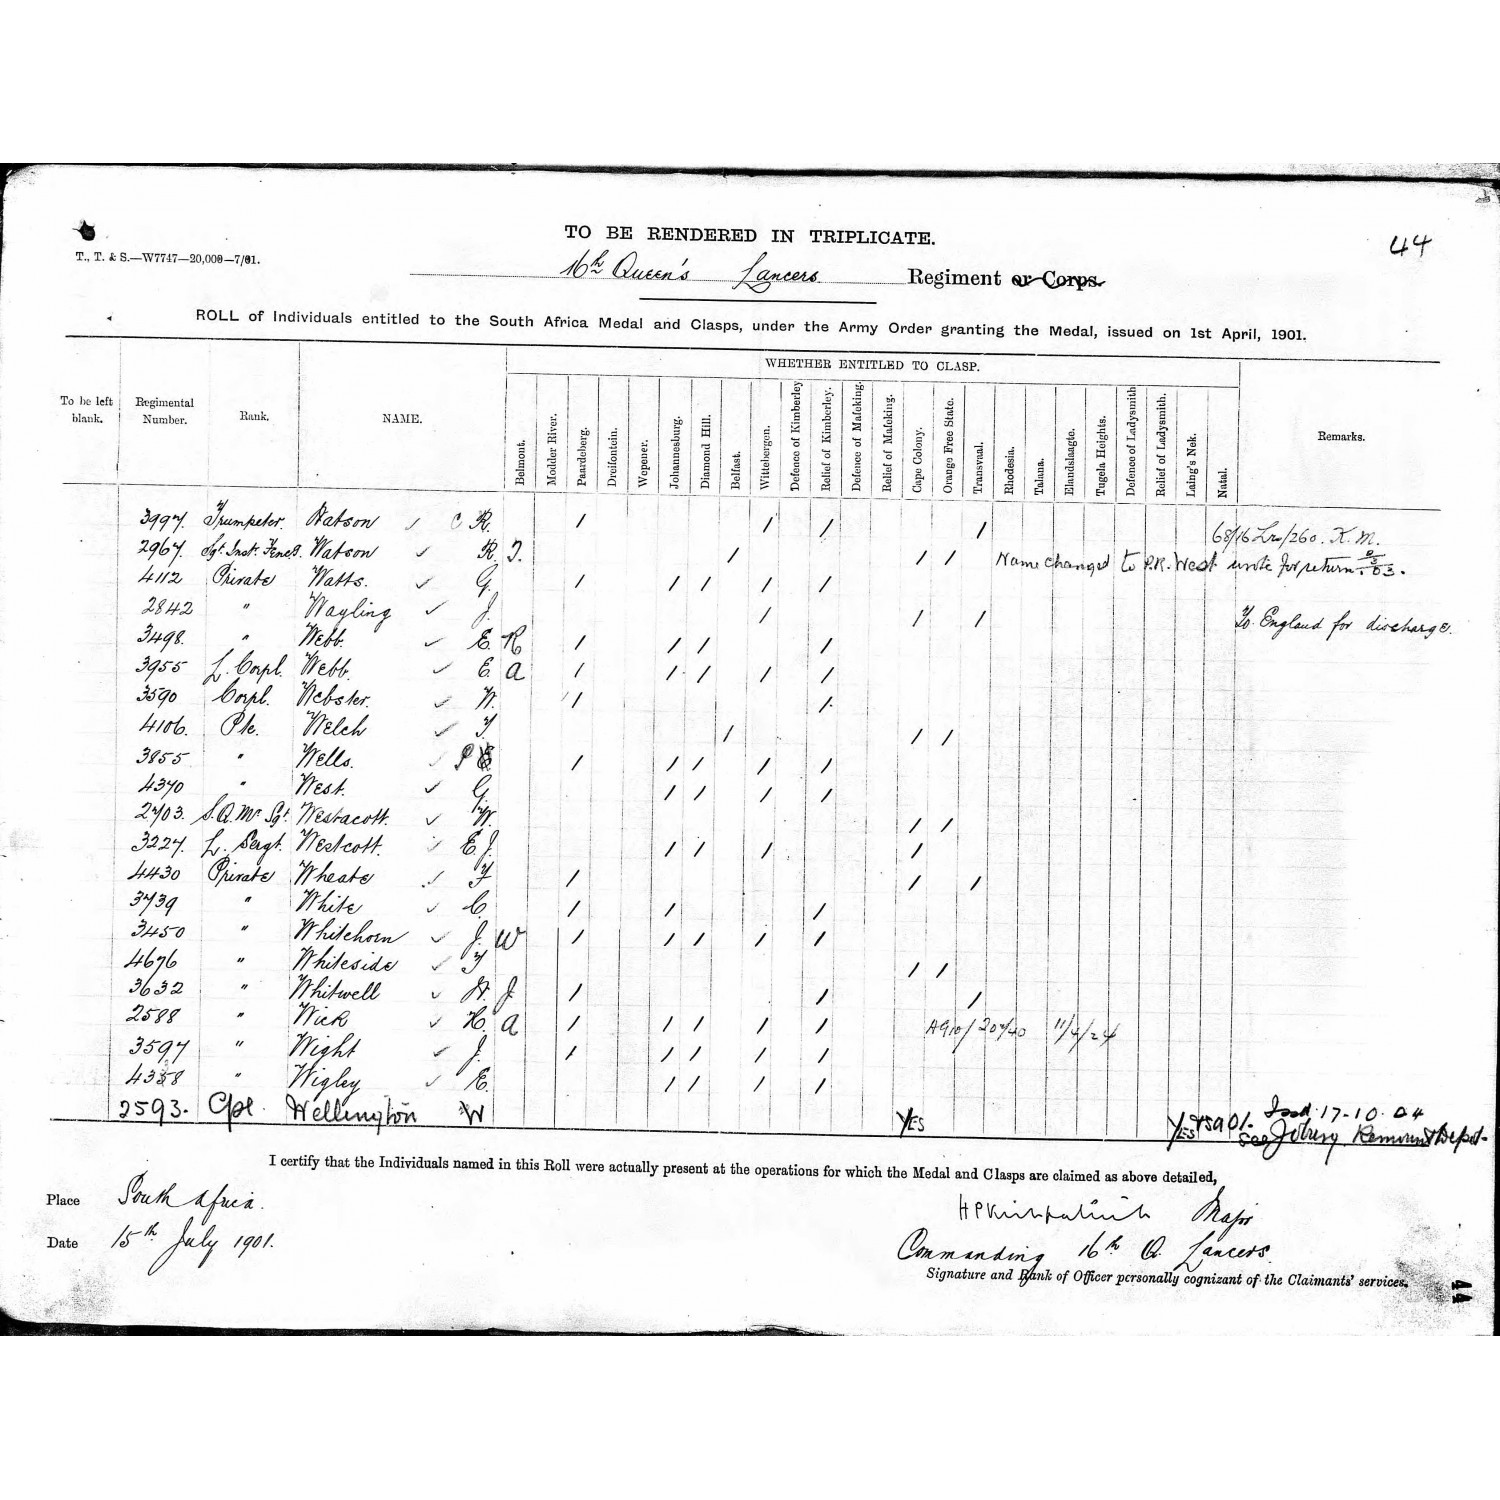 TO BE RENDERED IN TRIPLICATE.
44
T., T. & S.—W7747—20,000—7/01.
16th Queen's Lancers Regiment or Corps.
ROLL of Individuals entitled to the South Africa Medal and Clasps, under the Army Order granting the Medal, issued on 1st April, 1901.
WHETHER ENTITLED TO CLASP.
To be left blank. Regimental Number. Rank. NAME. Belmont. Modder River. Paardeberg. Dreifontein. Wepener. Johannesburg. Diamond Hill. Belfast. Wittebergen. Defence of Kimberley Relief of Kimberley. Defence of Mafeking. Relief of Mafeking. Cape Colony. Orange Free State. Transvaal. Rhodesia. Talana. Elandslaagte. Tugela Heights. Defence of Ladysmith Relief of Ladysmith. Laing's Nek. Natal. Remarks.
3997. Trumpeter. Watson ✓ C R. / / / / 68/16 Lrs/260. K.M.
2967. Sgt. Inst. Fenc. Watson ✓ R. J. / / / Name changed to P.R. West wrote for return
4112 Private Watts. ✓ G. / / / / /
2842 " Wayling ✓ J. / / / To England for discharge.
3498. " Webb. ✓ E. R / / / /
3955 L. Corpl. Webb. ✓ E. A / / / / /
3590 Corpl. Webster. ✓ W. / /
4106. Pte. Welch ✓ T. / / /
3855 " Wells. ✓ P / / / / /
4370 " West. ✓ G / / / /
2703. S.Q.Mr Sgt. Westacott. ✓ W. / /
3227. L. Sergt. Westcott. ✓ E. J. / / / /
4430 Private Wheate ✓ F / / /
3739 " White ✓ C. / / /
3450 " Whitehorn ✓ J. W / / / / /
4676 " Whiteside ✓ F / /
3632 " Whitwell ✓ W. J / / /
2588 " Wick ✓ H. A / / / / / 11/4/24
3597 " Wight ✓ J. / / / / /
4358 " Wigley ✓ E. / / / /
2593. Cpl. Wellington W YES YES 1901. Issd. 17-10-04
see Joburg Remount Depot.
I certify that the Individuals named in this Roll were actually present at the operations for which the Medal and Clasps are claimed as above detailed,
Place South Africa.
H P Kirkpatrick Major
Date 15th July 1901.
Commanding 16th Q. Lancers.
Signature and Rank of Officer personally cognizant of the Claimants' services.
44